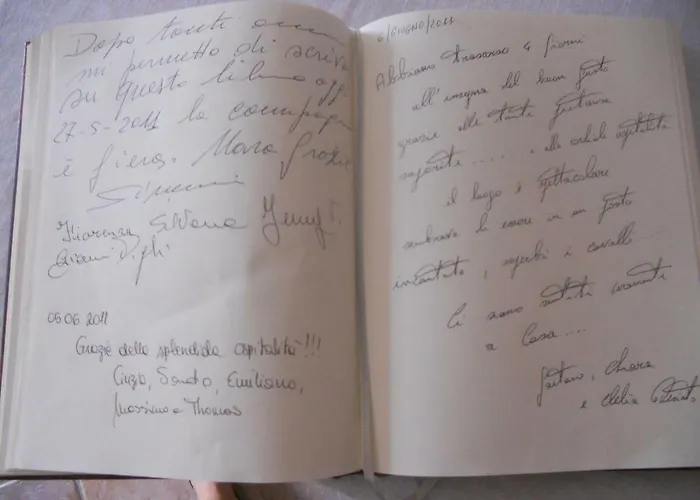 Dopo tanti anni
mi permetto di scrive
su questo libro oggi
27-5-2011 la compagn
è fiera. Maria Grazie
Fiorenza Silvana
Gianni
05.06.2011
Grazie della splendida ospitalità!!!
Cinzia, Sandro, Emiliano,
Massimo e Thomas
6/GIUGNO/2011
Abbiamo trascorso 4 giorni
all'insegna del buon gusto
grazie alle tante
saporite ..... e alla ospitalità
il luogo è spettacolare
sembrava di essere in un posto
incantato, superbi i cavalli...
Ci siamo sentiti veramente
a casa...
Gaetano, Chiara
e Clelia